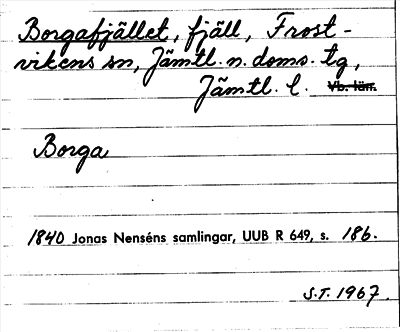 Borgafjället, fjäll, Frost-
vikens sn, Jämtl. n. doms. tg,
Jämtl. l. Vb. län.
Borga
1840 Jonas Nenséns samlingar, UUB R 649, s. 186.
S.T. 1967.